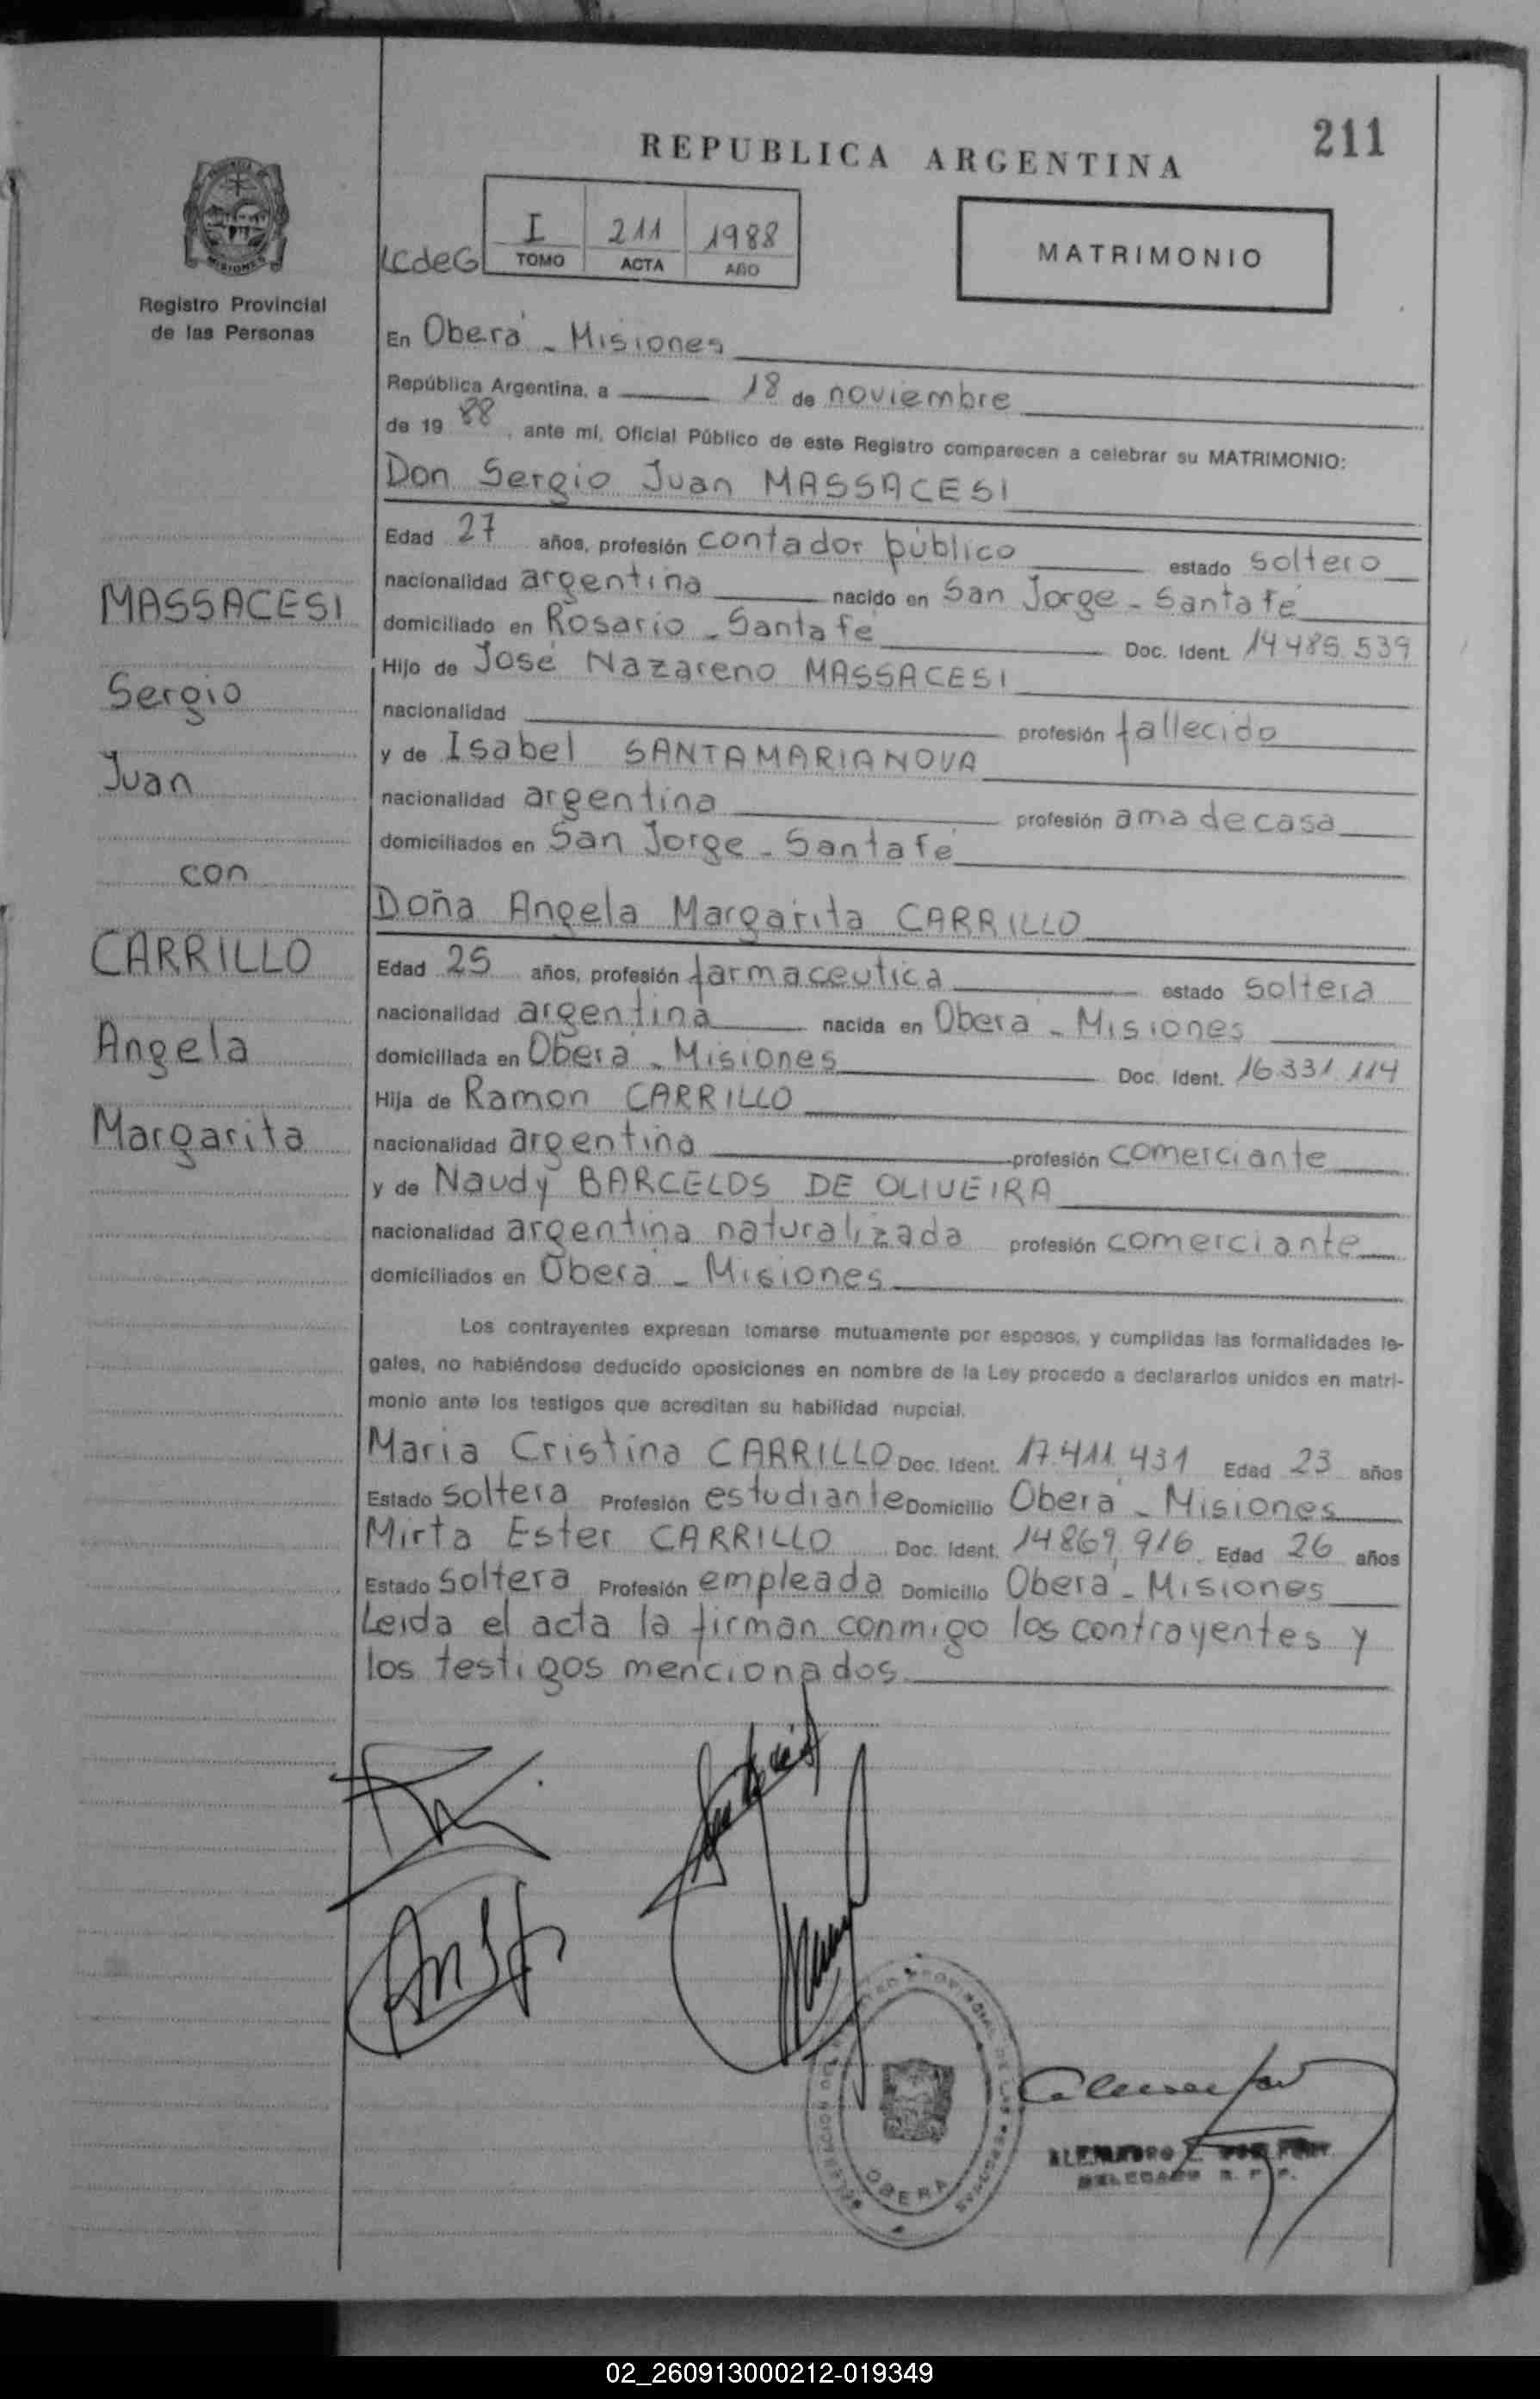 211
REPUBLICA ARGENTINA
I 211 1988
LCdeG TOMO ACTA AÑO
MATRIMONIO
MISIONES
Registro Provincial
de las Personas
En Oberá - Misiones
República Argentina, a 18 de noviembre
de 19 88, ante mí, Oficial Público de este Registro comparecen a celebrar su MATRIMONIO:
Don Sergio Juan MASSACESI
Edad 27 años, profesión contador público estado soltero
nacionalidad argentina nacido en San Jorge - Santa fé
domiciliado en Rosario - Santa fé Doc. Ident. 14.485.539
Hijo de José Nazareno MASSACESI
nacionalidad profesión fallecido
y de Isabel SANTAMARIANOVA
nacionalidad argentina profesión ama de casa
domiciliados en San Jorge - Santa fé
Doña Angela Margarita CARRILLO
Edad 25 años, profesión farmaceutica estado soltera
nacionalidad argentina nacida en Oberá - Misiones
domiciliada en Oberá - Misiones Doc. Ident. 16.331.114
Hija de Ramon CARRILLO
nacionalidad argentina profesión comerciante
y de Naudy BARCELOS DE OLIVEIRA
nacionalidad argentina naturalizada profesión comerciante
domiciliados en Oberá - Misiones
MASSACESI
Sergio
Juan
con
CARRILLO
Angela
Margarita
Los contrayentes expresan tomarse mutuamente por esposos, y cumplidas las formalidades le-
gales, no habiéndose deducido oposiciones en nombre de la Ley procedo a declararlos unidos en matri-
monio ante los testigos que acreditan su habilidad nupcial.
Maria Cristina CARRILLO Doc. Ident. 17.411.431 Edad 23 años
Estado soltera Profesión estudiante Domicilio Oberá - Misiones
Mirta Ester CARRILLO Doc. Ident. 14.869.916 Edad 26 años
Estado soltera Profesión empleada Domicilio Oberá - Misiones
Leida el acta la firman conmigo los contrayentes y
los testigos mencionados
PROVINCIAL DE LAS PERSONAS
OBERA
ALEJANDRO
DELEGADO R. P. P.
02_260913000212-019349